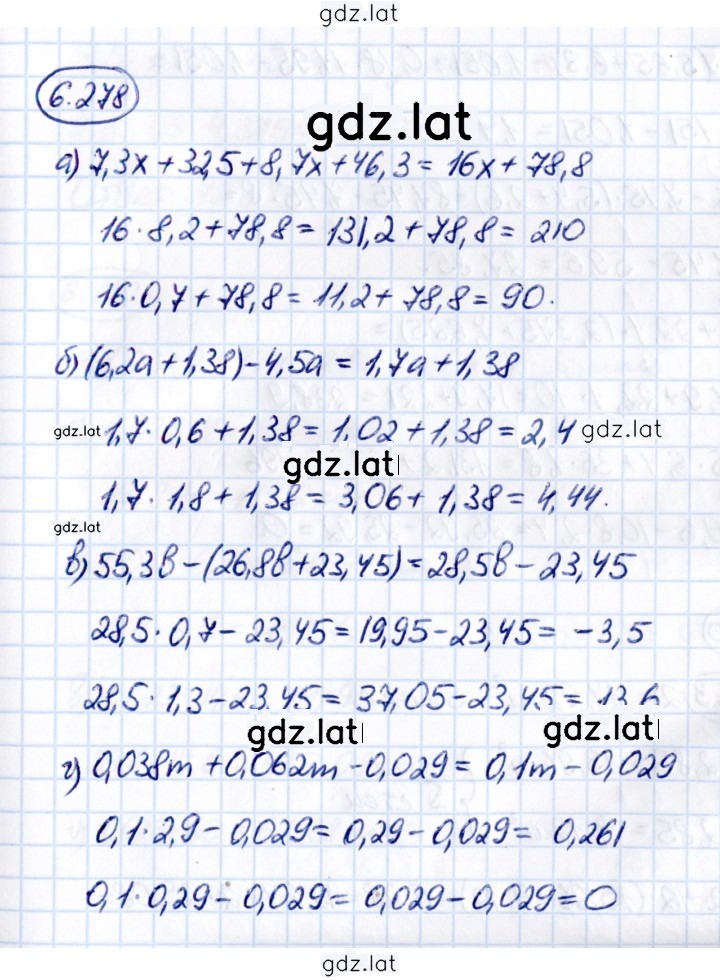 gdz.lat
6.278
gdz.lat
а) 7,3x + 32,5 + 8,7x + 46,3 = 16x + 78,8
16 · 8,2 + 78,8 = 131,2 + 78,8 = 210
16 · 0,7 + 78,8 = 11,2 + 78,8 = 90.
б) (6,2a + 1,38) - 4,5a = 1,7a + 1,38
gdz.lat 1,7 · 0,6 + 1,38 = 1,02 + 1,38 = 2,4 gdz.lat
gdz.lat
1,7 · 1,8 + 1,38 = 3,06 + 1,38 = 4,44.
gdz.lat
в) 55,3в - (26,8в + 23,45) = 28,5в - 23,45
28,5 · 0,7 - 23,45 = 19,95 - 23,45 = -3,5
28,5 · 1,3 - 23,45 = 37,05 - 23,45 = 13,6
gdz.lat gdz.lat
г) 0,038m + 0,062m - 0,029 = 0,1m - 0,029
0,1 · 2,9 - 0,029 = 0,29 - 0,029 = 0,261
0,1 · 0,29 - 0,029 = 0,029 - 0,029 = 0
gdz.lat